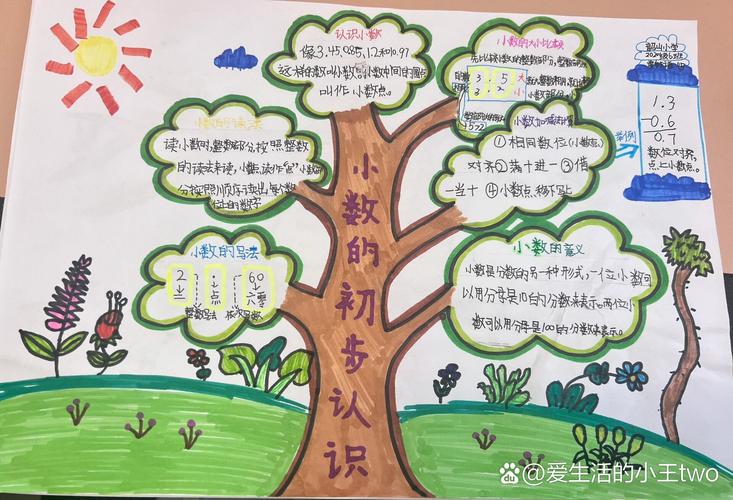 认识小数
像3.45,0.85,1.2和0.97
这样的数叫小数。小数中间的圆点
叫作小数点。
小数的读法
读小数时,整数部分按照整数
的读法来读,小数点读作“点”小数部
分按照顺序读出每个数
位上的数字
小数的写法
2 . 60
二 点 六零
整数写法 依次写数
小数的大小比较
先比较小数的整数部分,整数部分
3.5 大
3.2 小
小数加减法计算
①相同数位(小数点)
对齐②满十进一③借
一当十④小数点移下
举例
韶山小学
1.3
-0.6
0.7
数位对齐,
点上小数点。
小数的意义
小数是分数的另一种形式,一位小数可
以用分母是10的分数来表示。两位小
数可以用分母是100的分数来表示。
小数的初步认识
Bai du @爱生活的小王two